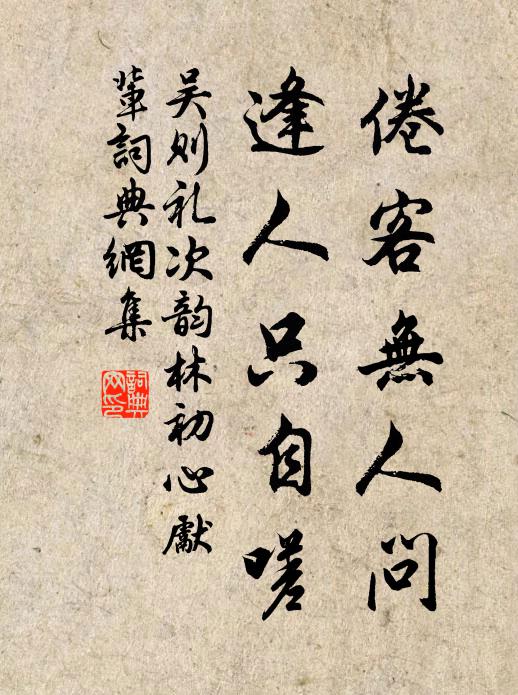 倦客無人問
逢人只自嗟
吴则礼次韵林初心獻
輩詞典網集
詞典
网印